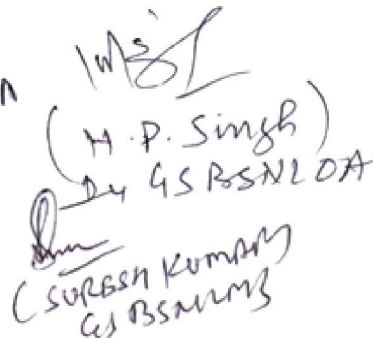 (H.P. Singh)
Dy GS BSNLOA
(SURESH KUMAR)
GS BSNLMS